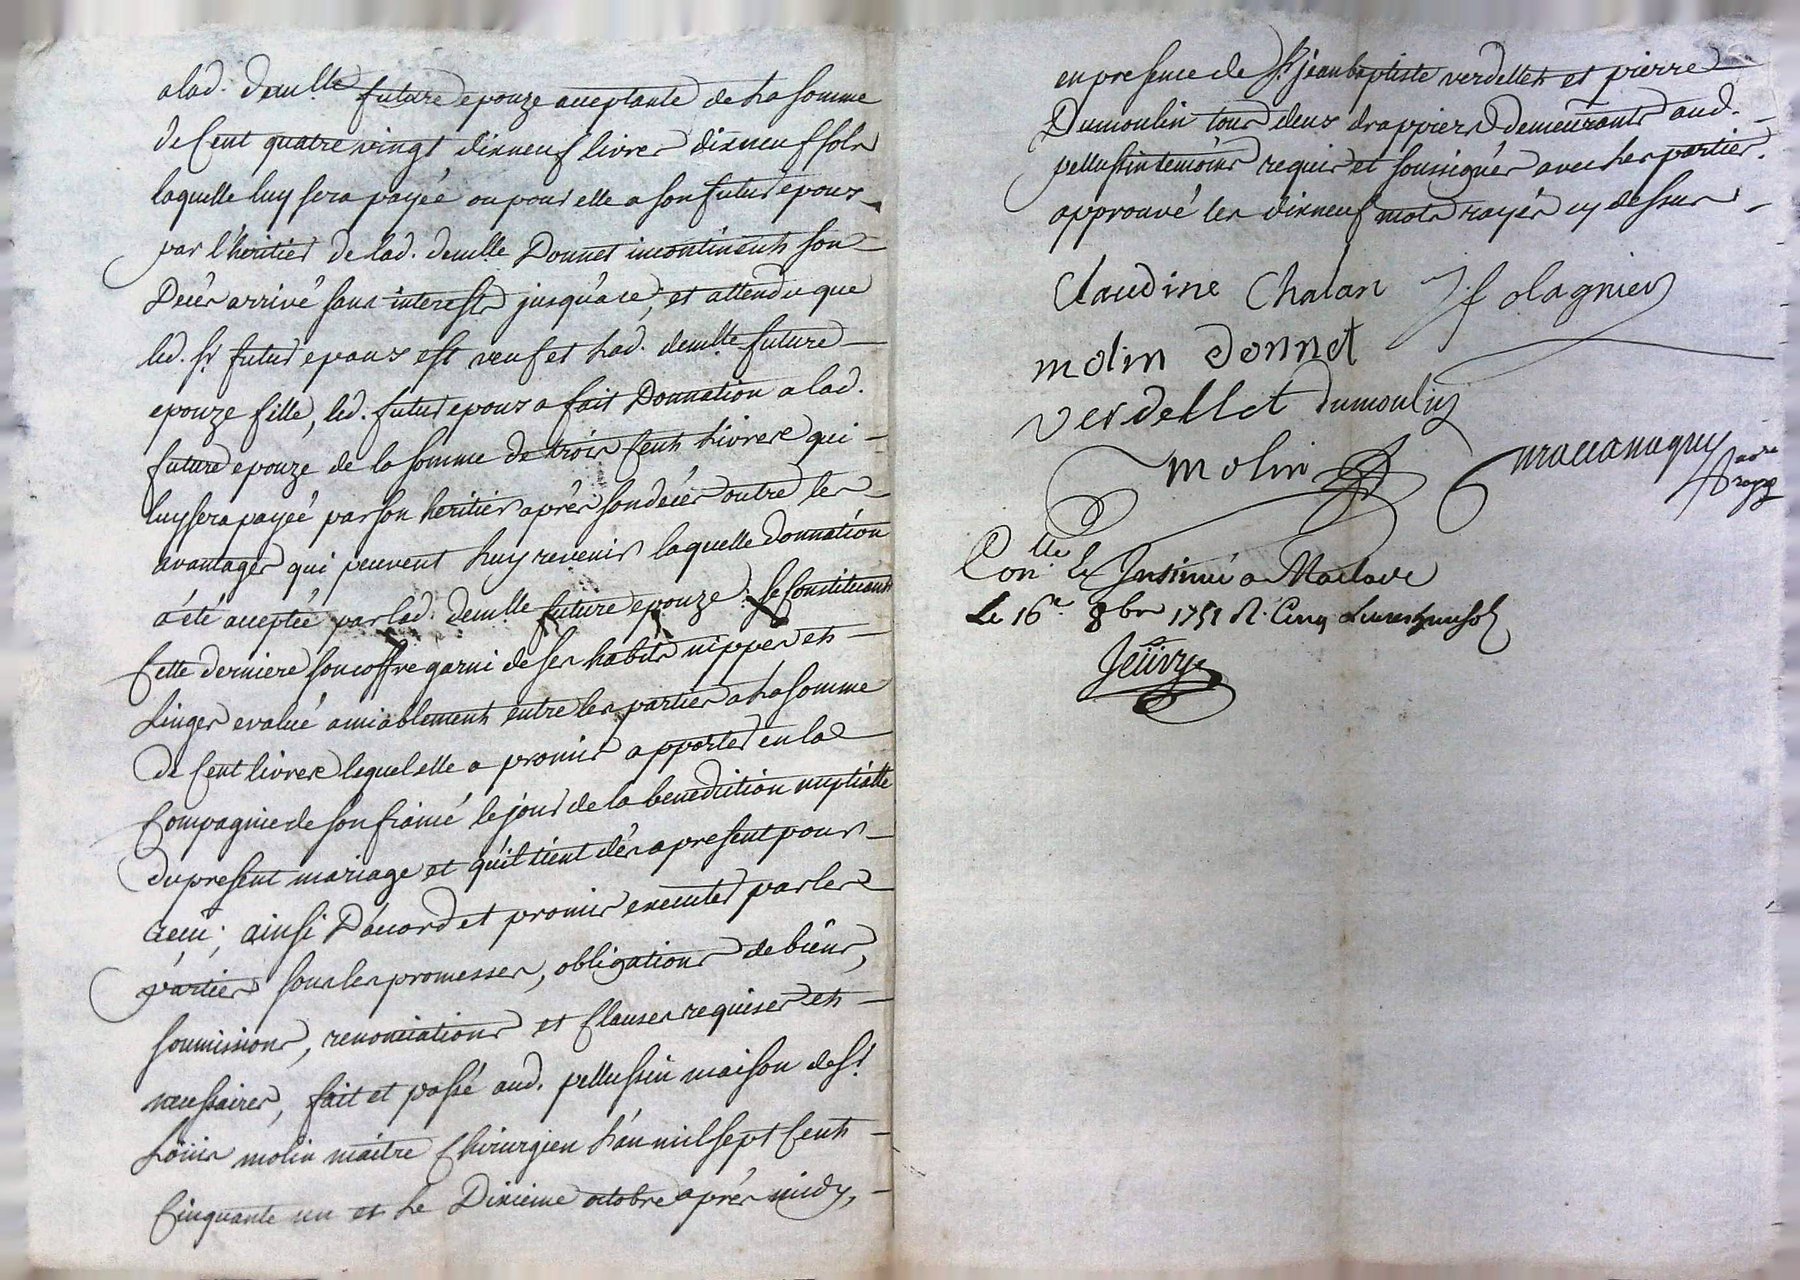 alad. demlle future epouze acceptante de la somme
de Cent quatre vingt dixneuf livres dixneuf sols
laquelle luy sera payée ou pour elle a son futur epoux
par l'heritier de lad. demlle Donnet incontinent son
Decés arrivé sans interest jusqu'a ce, et attendu que
led. sr. futur epoux est veuf et lad. demlle future
epouze fille, led. futur epoux a fait Donnation a lad.
future epouze de la somme de trois Cent Livres qui
luy sera payée par son heritier aprés son decés outre les
avantages qui peuvent luy revenir laquelle donnation
a été acceptée par lad. demlle future epouze : se Constituant
Cette derniere son coffre garni de ses habits nippes et
Linges evalué amiablement entre les parties a la somme
de Cent livres lequel elle a promis apporter en la
Compagnie de son fiancé le jour de la benediction nuptialle
du present mariage et qu'il tient dés a present pour
receu ; ainsi D'acord et promis executer par les
parties sous les promesses, obligations de biens,
soumissions, renonciations et Clauses requises et
necessaires, fait et passé aud. pellussin maison de sr.
Loüis molin maitre Chirurgien L'an mil sept Cent
Cinquante un et Le Dixieme octobre aprés midy,
en presence de sr. jean baptiste verdellet et pierre
Dumoulin tous deux drappiers demeurants aud.
pellussin temoins requis et soussignés avec les parties.
approuvé les dixneuf mots rayés cy dessus
Claudine Chalan J f olagnier
molin donnet
verdellet dumoulin
molin
Conlle. & Insinué a Maclave
Le 16e. 8bre 1751 R. Cinq Livres